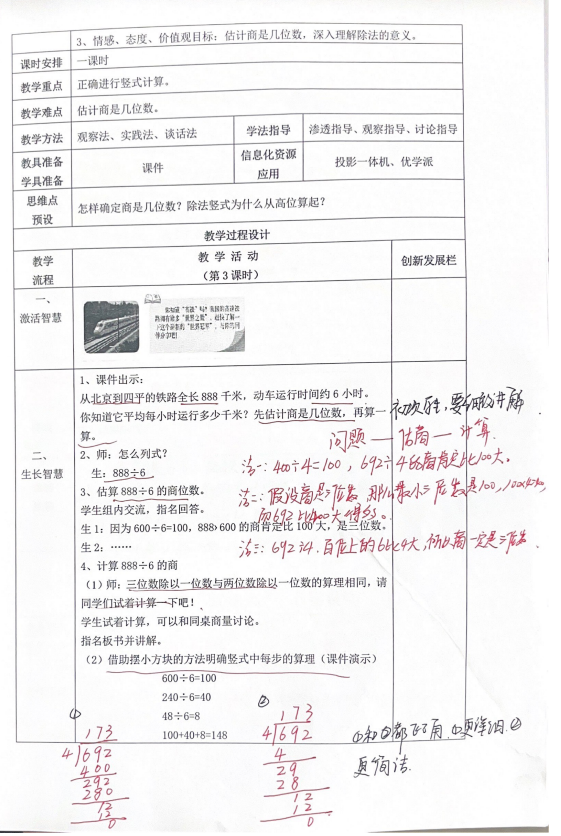 3、情感、态度、价值观目标：估计商是几位数，深入理解除法的意义。
课时安排 一课时
教学重点 正确进行竖式计算。
教学难点 估计商是几位数。
教学方法 观察法、实践法、谈话法 学法指导 渗透指导、观察指导、讨论指导
教具准备 学具准备 课件 信息化资源应用 投影一体机、优学派
思维点预设 怎样确定商是几位数？除法竖式为什么从高位算起？
教学过程设计
教学流程 教 学 活 动 （第 3 课时） 创新发展栏
一、
激活智慧
二、
生长智慧
1、课件出示：
从北京到四平的铁路全长 888 千米，动车运行时间约 6 小时。
你知道它平均每小时运行多少千米？先估计商是几位数，再算一
算。
问题—估商—计算
2、师：怎么列式？
生：888÷6
法一：400÷4=100，692÷4的商肯定比100大。
3、估算 888÷6 的商位数。
学生组内交流，指名回答。
法二：假设商是三位数，那么最小三位数是100，
生 1：因为 600÷6=100，888>600 的商肯定比 100 大，是三位数。
生 2：……
法三：692÷4，百位上的6比4大，所以商一定是三位数。
4、计算 888÷6 的商
（1）师：三位数除以一位数与两位数除以一位数的算理相同，请
同学们试着计算一下吧！
学生试着计算，可以和同桌商量讨论。
指名板书并讲解。
（2）借助摆小方块的方法明确竖式中每步的算理（课件演示）
600÷6=100
240÷6=40
48÷6=8
100+40+8=148
①
173
4)692
400
292
280
12
12
0
②
173
4)692
4
29
28
12
12
0
①和②都可以用，①更详细，②
更简洁.